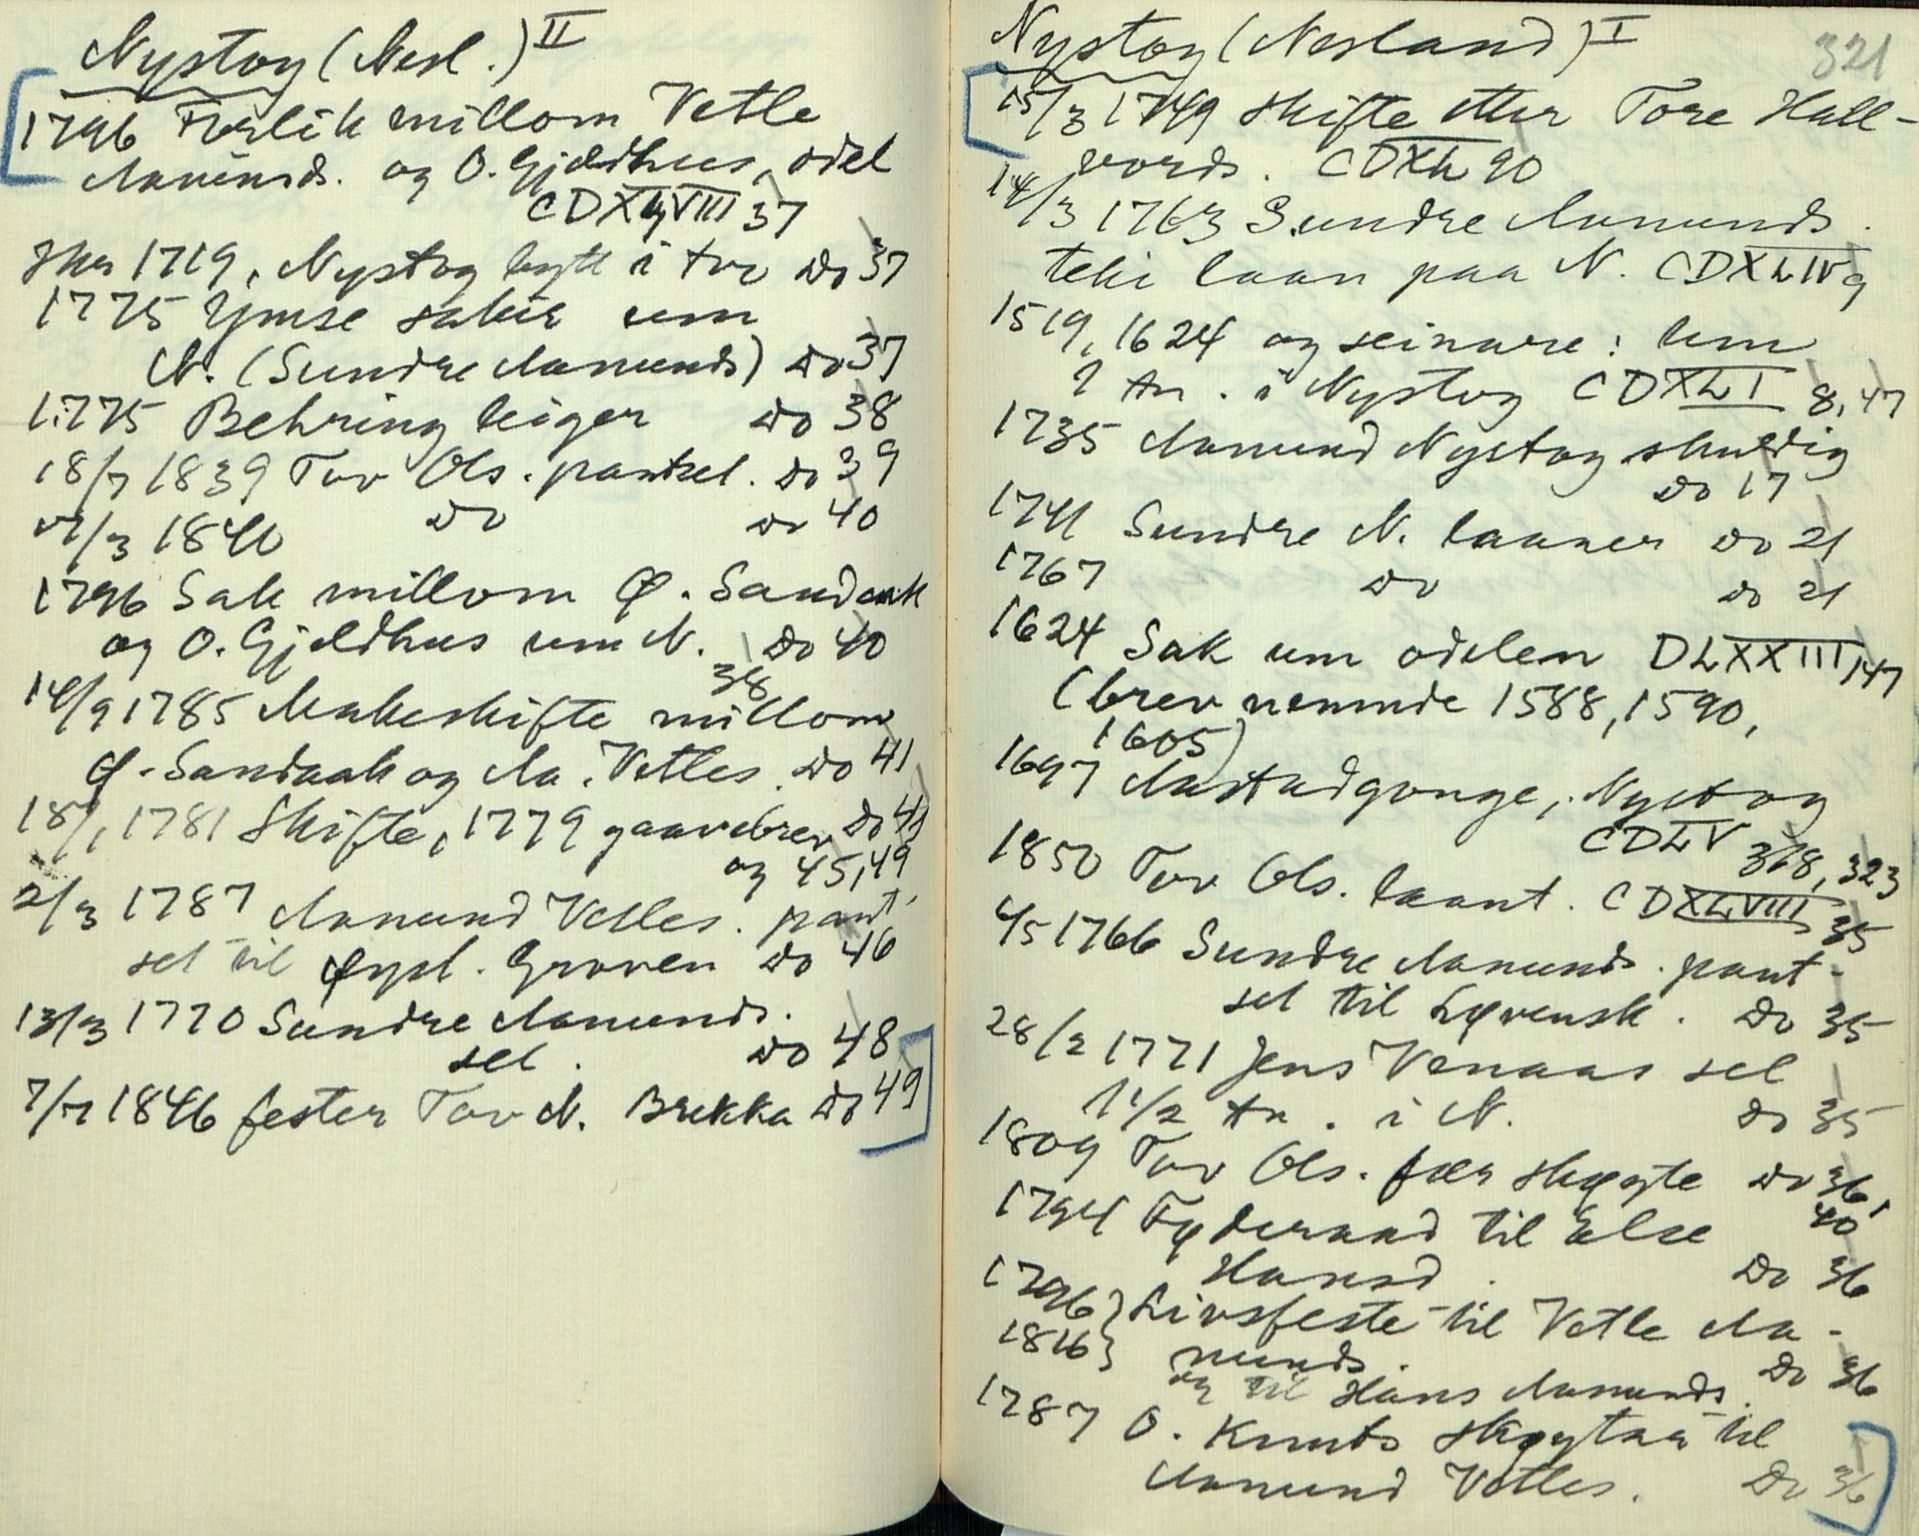 Nystog (Nesl.) II
1796 Forlik millom Vetle
Aamunds. og O. Gjeldhus, odel
CDXLVIII 37
1719, Nystog bytt i tvo Do 37
1775 Ymse saker um
N. (Sundre Aamunds) Do 37
1775 Behring leiger Do 38
18/7 1839 Tov Ols. pantsel. Do 39
/3 1840 Do Do 40
1796 Sak millom Ø. Sandaak
og O. Gjeldhus um N. Do 40
38
14/9 1785 Makeskifte millom
Ø. Sandaak og Aa. Vetles. Do 41
18/1 1781 Skifte, 1779 gaavebrev Do 41
og 45, 49
2/3 1787 Aamund Vetles. pant-
sel til Øyst. Groven Do 46
13/3 1770 Sundre Aamunds.
sel. Do 48
7/7 1846 fester Tov N. Brekka Do 49
Nystog (Nesland) I
321
15/3 1749 Skifte etter Tore Hall-
vords. CDXL 90
14/3 1763 Sundre Aamunds.
teki laan paa N. CDXLIV 9
1519, 1624 og seinare: um
2 tn. i Nystog CDXLI 8, 47
1735 Aamund Nystog skuldig
Do 17
1741 Sundre N. laaner Do 21
1767 Do Do 21
1624 Sak um odelen DLXXIII, 147
(brev nemnde 1588, 1590,
1605)
1697 Aastadgonge, Nystog
CDLV 318, 323
1850 Tov Ols. laant. CDXLVIII 35
4/5 1766 Sundre Aamunds. pant-
sel til Løvensk. Do 35
28/2 1771 Jens Venaas sel
1 1/2 tn. i N. Do 35
1809 Tov Ols. fær skøyte Do 36,
40
1794 Føderaad til Else
Hansd. Do 36
1796 } Livsfeste til Vetle Aa-
1816 } munds. Do 36
og til Hans Aamunds.
1787 O. Knuts skøytar til
Aamund Vetles. Do 36